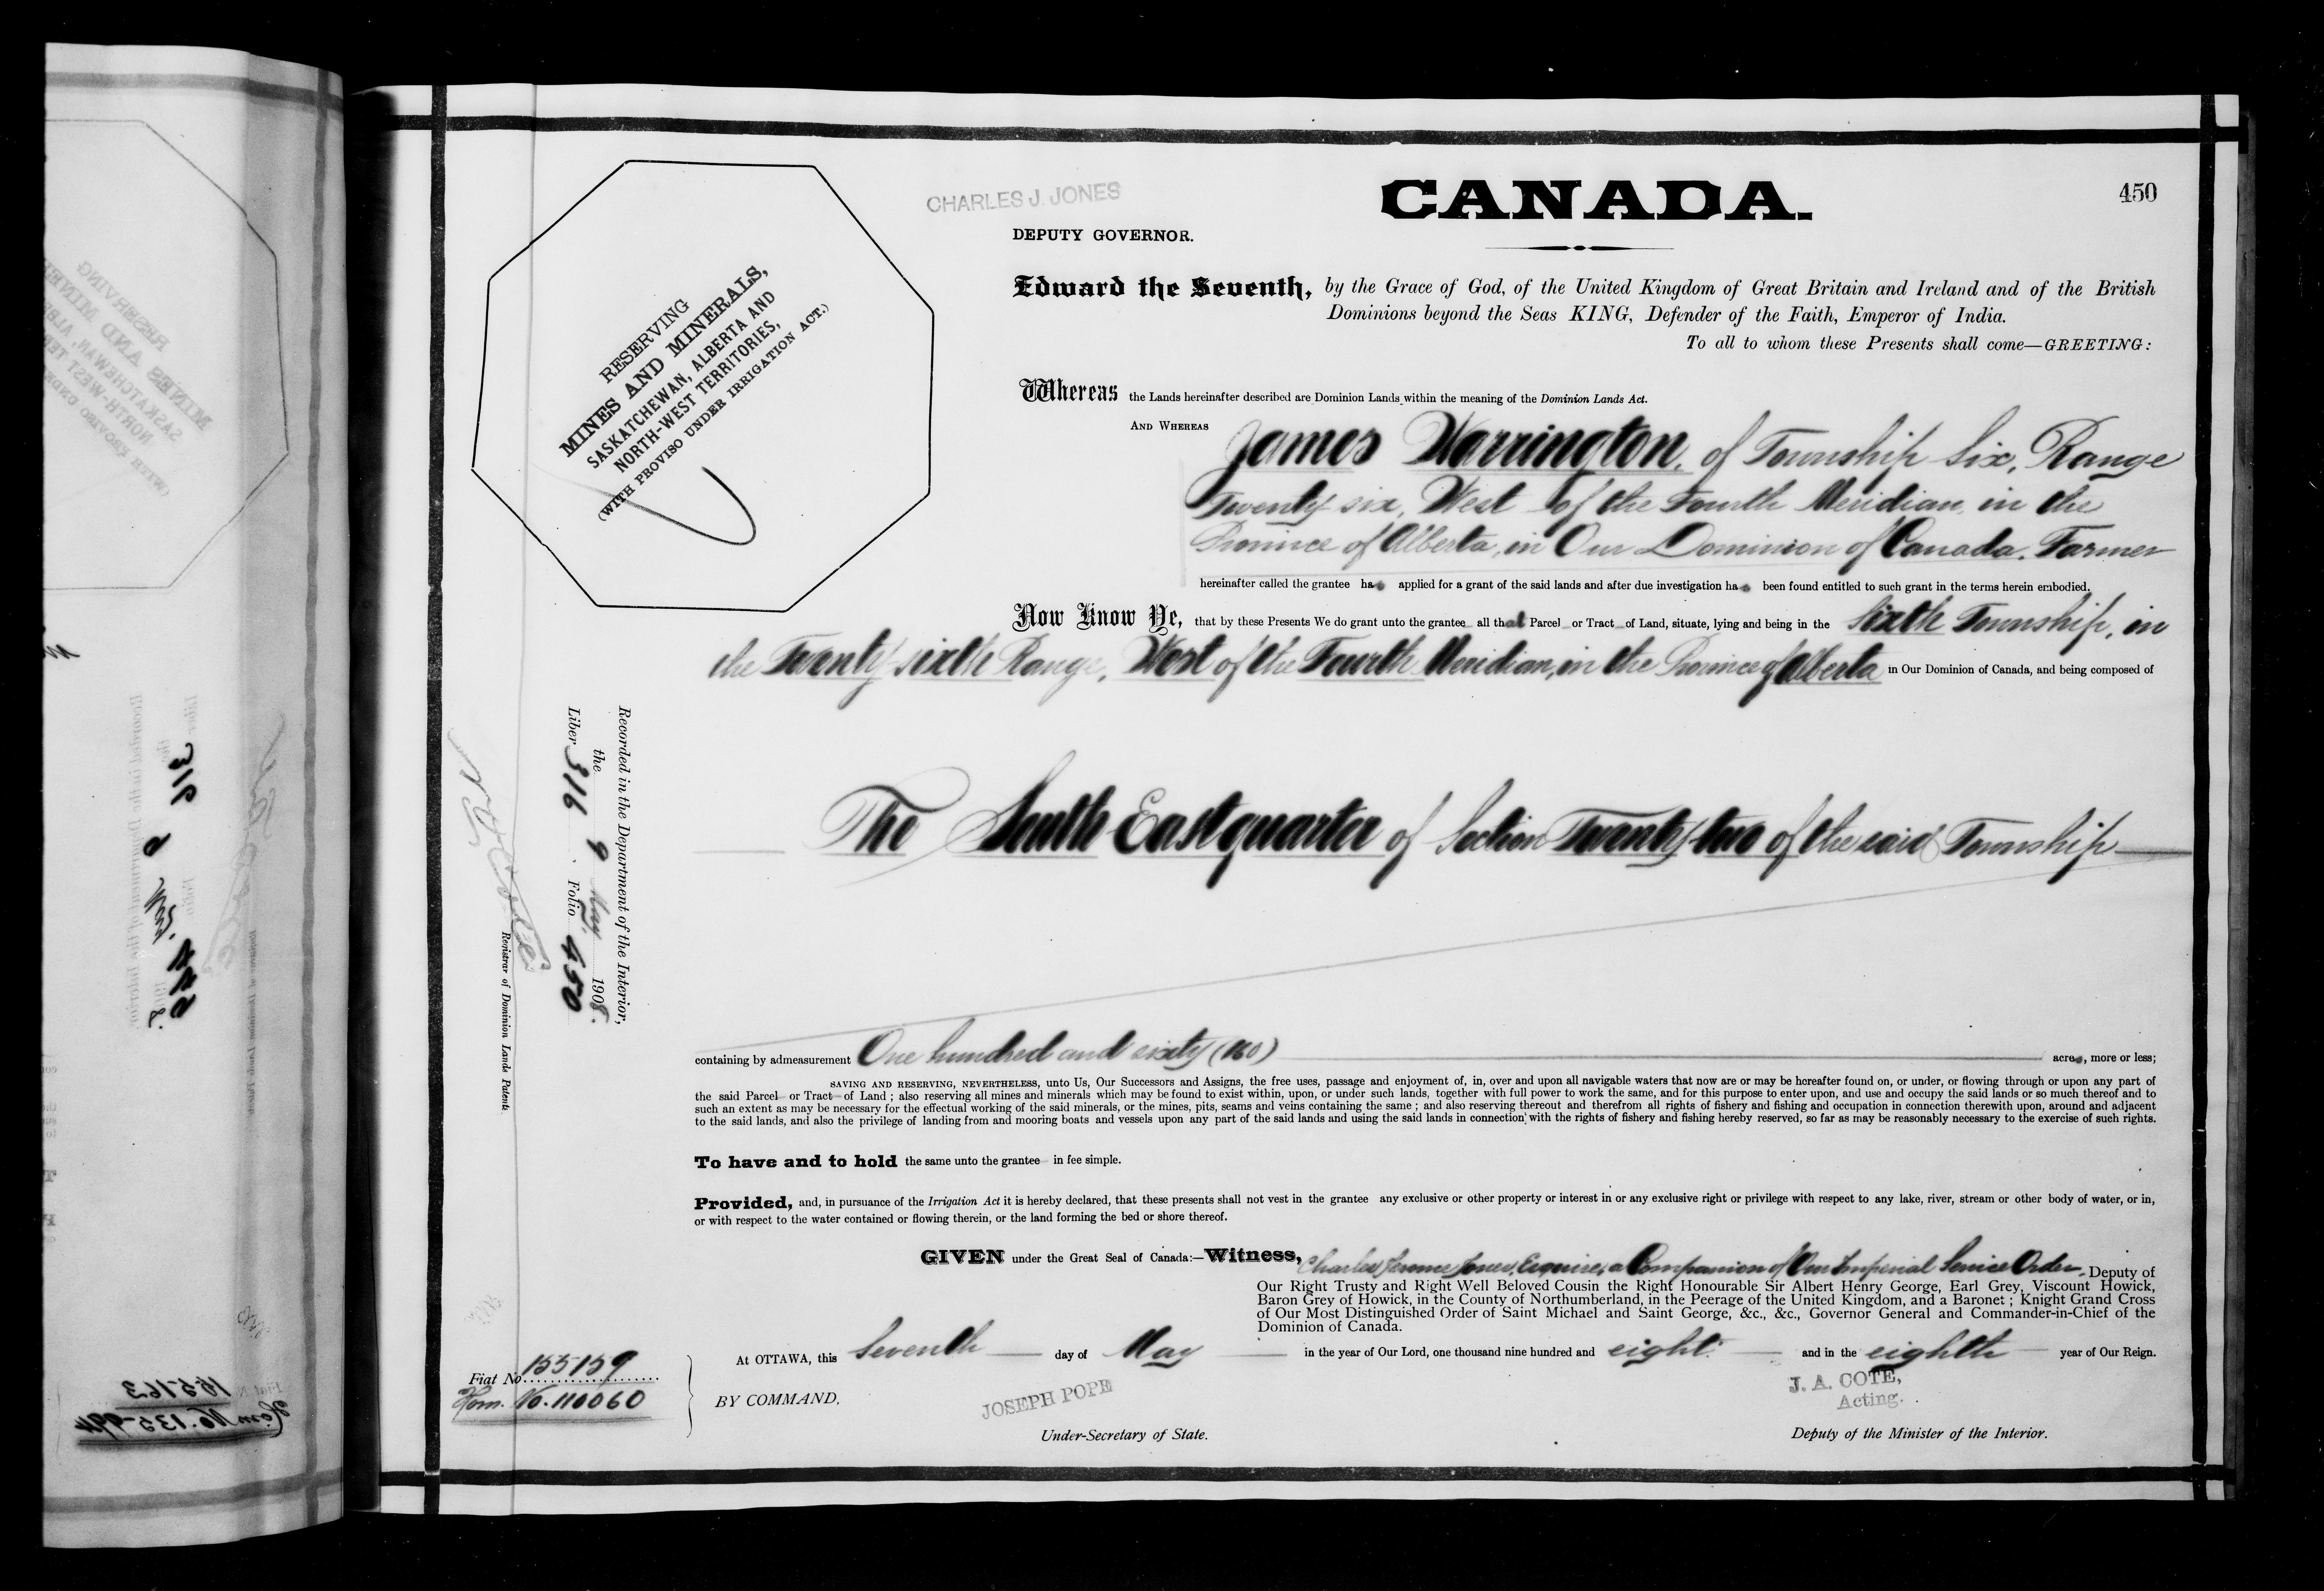 450
CHARLES J. JONES
CANADA.
DEPUTY GOVERNOR.
RESERVING
MINES AND MINERALS,
SASKATCHEWAN, ALBERTA AND
NORTH-WEST TERRITORIES,
(WITH PROVISO UNDER IRRIGATION ACT.)
Edward the Seventh, by the Grace of God, of the United Kingdom of Great Britain and Ireland and of the British
Dominions beyond the Seas KING, Defender of the Faith, Emperor of India.
To all to whom these Presents shall come—GREETING:
Whereas the Lands hereinafter described are Dominion Lands within the meaning of the Dominion Lands Act.
AND WHEREAS James Warrington, of Township Six, Range
Twenty six, West of the Fourth Meridian, in the
Province of Alberta, in Our Dominion of Canada, Farmer
hereinafter called the grantee has applied for a grant of the said lands and after due investigation has been found entitled to such grant in the terms herein embodied.
Now Know Ye, that by these Presents We do grant unto the grantee all that Parcel or Tract of Land, situate, lying and being in the Sixth Township, in
the Twenty-sixth Range, West of the Fourth Meridian, in the Province of Alberta in Our Dominion of Canada, and being composed of
The South East quarter of Section Twenty-two of the said Township
Recorded in the Department of the Interior,
the 9 May 1908.
Liber 316 Folio 450
N. O. Coté
Registrar of Dominion Lands Patents.
containing by admeasurement One hundred and sixty (160) acres, more or less;
SAVING AND RESERVING, NEVERTHELESS, unto Us, Our Successors and Assigns, the free uses, passage and enjoyment of, in, over and upon all navigable waters that now are or may be hereafter found on, or under, or flowing through or upon any part of
the said Parcel or Tract of Land ; also reserving all mines and minerals which may be found to exist within, upon, or under such lands, together with full power to work the same, and for this purpose to enter upon, and use and occupy the said lands or so much thereof and to
such an extent as may be necessary for the effectual working of the said minerals, or the mines, pits, seams and veins containing the same ; and also reserving thereout and therefrom all rights of fishery and fishing and occupation in connection therewith upon, around and adjacent
to the said lands, and also the privilege of landing from and mooring boats and vessels upon any part of the said lands and using the said lands in connection with the rights of fishery and fishing hereby reserved, so far as may be reasonably necessary to the exercise of such rights.
To have and to hold the same unto the grantee in fee simple.
Provided, and, in pursuance of the Irrigation Act it is hereby declared, that these presents shall not vest in the grantee any exclusive or other property or interest in or any exclusive right or privilege with respect to any lake, river, stream or other body of water, or in,
or with respect to the water contained or flowing therein, or the land forming the bed or shore thereof.
GIVEN under the Great Seal of Canada:—Witness, Charles Jerome Jones, Esquire, a Companion of Our Imperial Service Order, Deputy of
Our Right Trusty and Right Well Beloved Cousin the Right Honourable Sir Albert Henry George, Earl Grey, Viscount Howick,
Baron Grey of Howick, in the County of Northumberland, in the Peerage of the United Kingdom, and a Baronet ; Knight Grand Cross
of Our Most Distinguished Order of Saint Michael and Saint George, &c., &c., Governor General and Commander-in-Chief of the
Dominion of Canada.
At OTTAWA, this Seventh day of May in the year of Our Lord, one thousand nine hundred and eight and in the eighth year of Our Reign.
Fiat No 155159
Hom. No. 110060
BY COMMAND,
JOSEPH POPE
Under-Secretary of State.
J. A. COTE,
Acting.
Deputy of the Minister of the Interior.